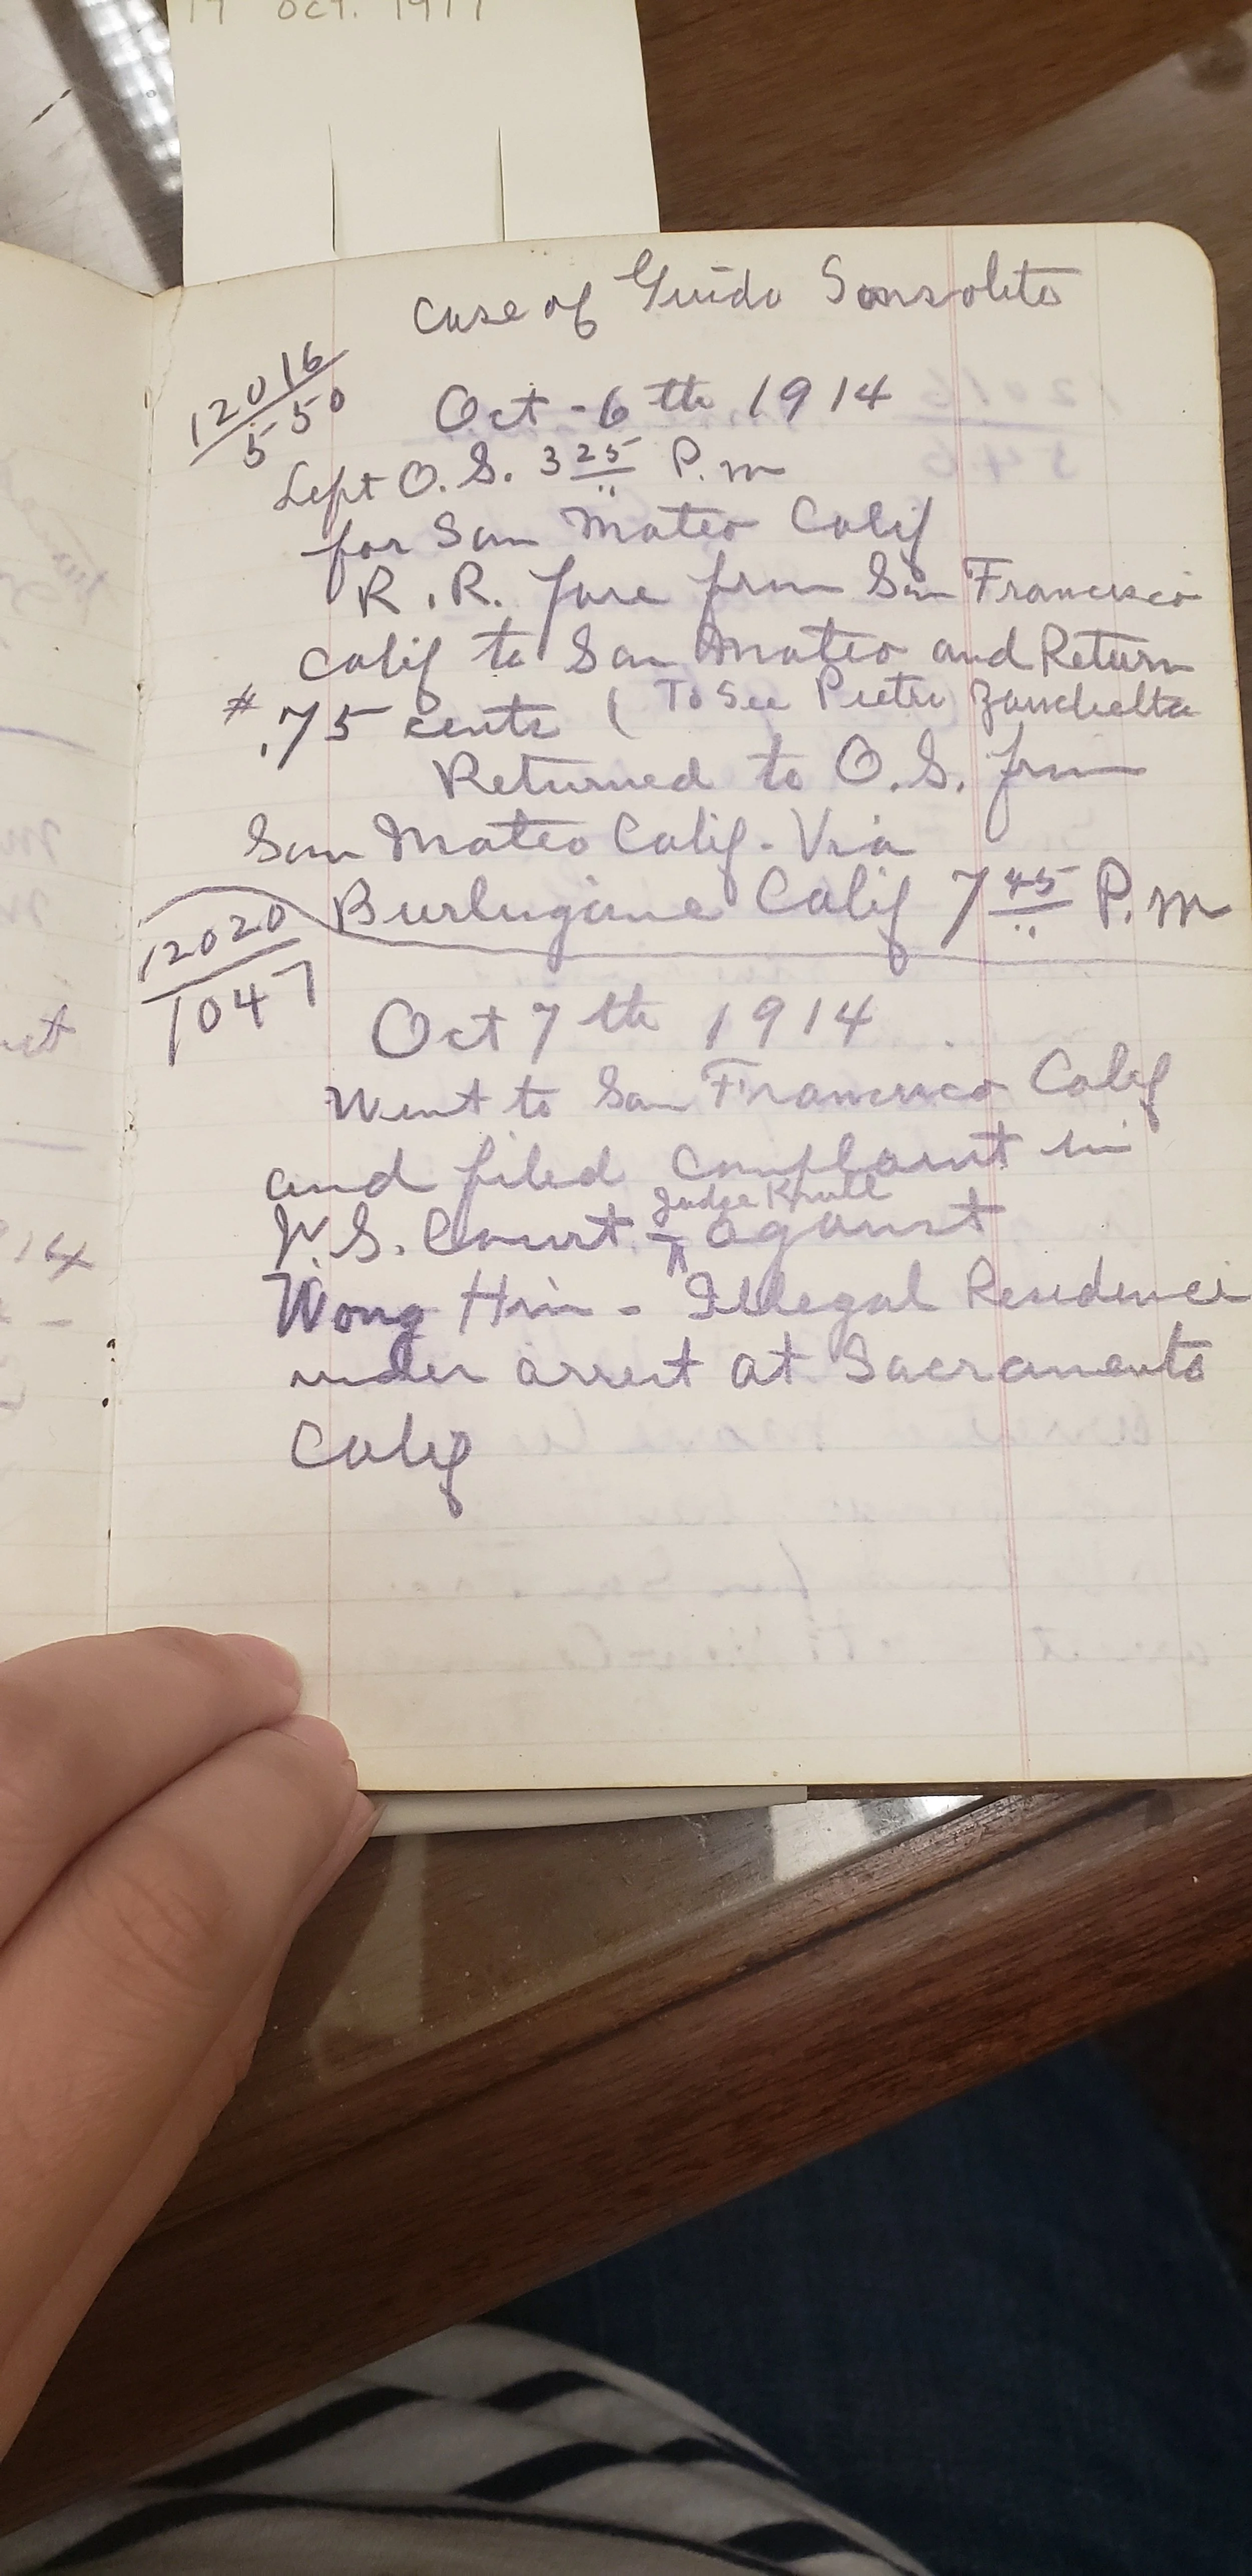 19 Oct. 1911
Case of Guido Sonsolito
12016
550
Oct - 6th 1914
Left O. S. 3 25 P. m
for San Mateo Calif
R. R. fare from San Francisco
Calif to San Mateo and Return
# .75 cents ( To See Pietro Zanchetta
Returned to O. S. from
San Mateo Calif. Via
Burlugame Calif 7 45 P. m
12020
1047
Oct 7th 1914
Went to San Francisco Calif
and filed complaint in
Judge Krull
U. S. Court against
Wong Him - Illegal Residence
under arrest at Sacramento
Calif